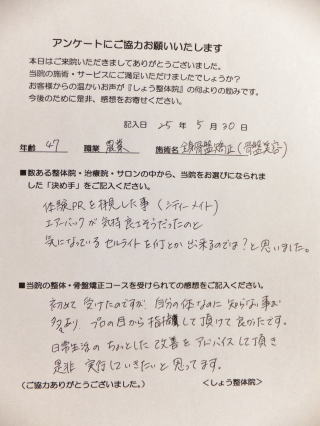 アンケートにご協力お願いいたします
本日はご来院いただきましてありがとうございました。
当院の施術・サービスにご満足いただけましたでしょうか?
お客様からの温かいお声が『しょう整体院』の何よりの励みです。
今後のために是非、感想をお寄せください。
記入日 25 年 5 月 30 日
年齢 47 職業 農業 施術名 鎖骨骨盤矯正(骨盤美容)
■数ある整体院・治療院・サロンの中から、当院をお選びになられま
した「決め手」をご記入ください。
体験PRを拝見した事(シティーメイト)
エアーバックが気持良さそうだったのと
気になっているセルライトを何とか出来るのでは?と思いました。
■当院の整体・骨盤矯正コースを受けられての感想をご記入ください。
初めて受けたのですが、自分の体なのに知らない事が
多々あり、プロの目から指摘して頂けて良かたです。
日常生活のちょっとした改善をアドバイスして頂き
是非 実行していきたいと思ってます。
(ご協力ありがとうございました。) <しょう整体院>